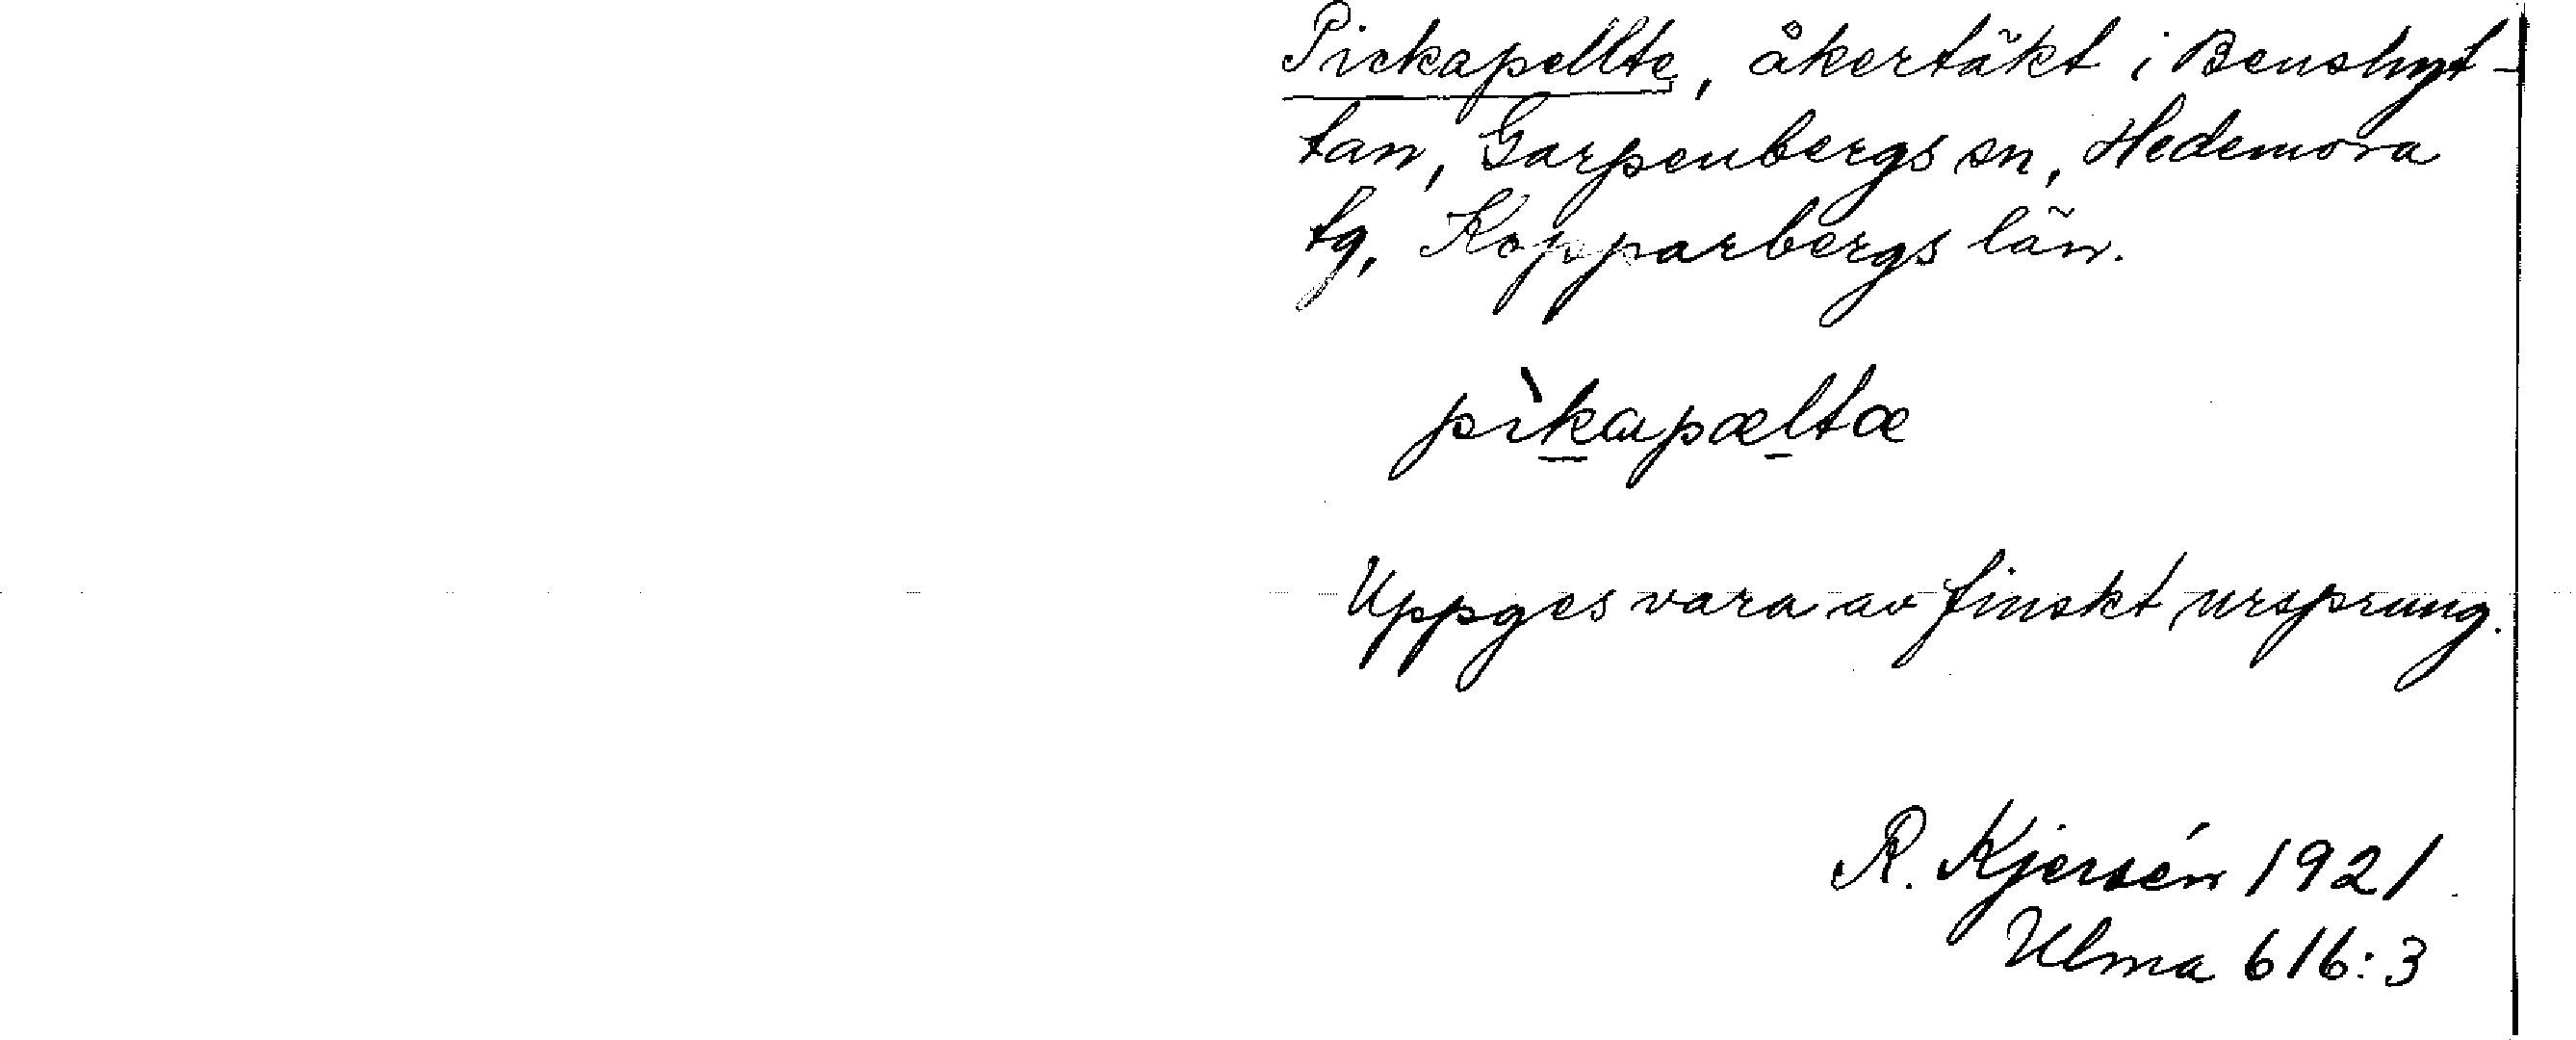 Pickapellte, åkertäkt i Benshyt-
tan, Garpenbergs sn, Hedemora
tg, Kopparbergs län.
pìkapæltæ
Uppges vara av finskt ursprung.
R. Kjersén 1921
Ulma 616:3